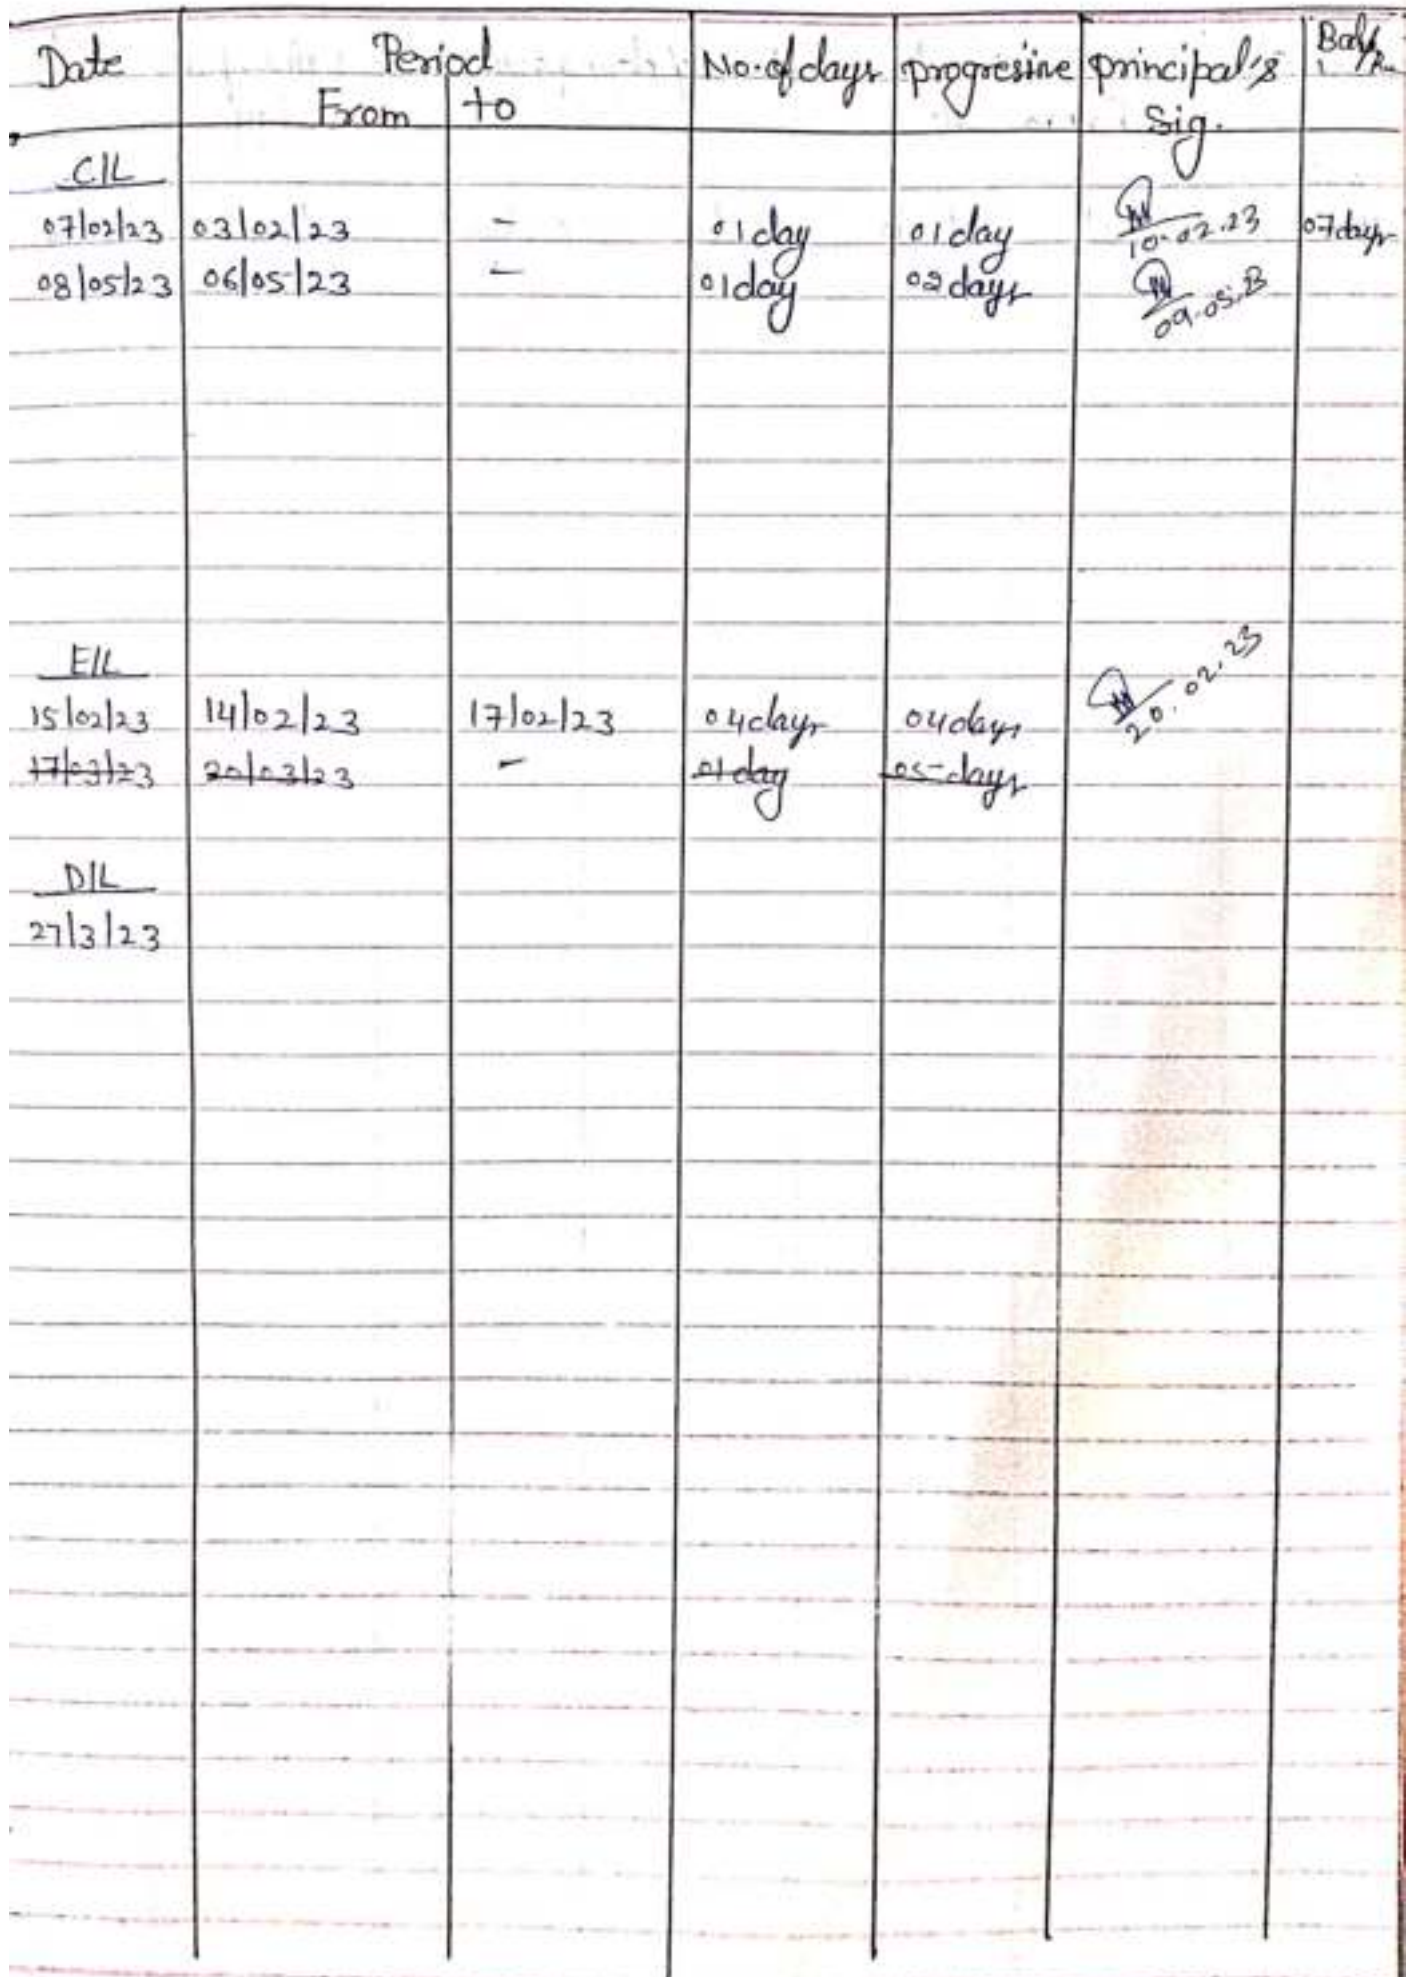 Date Period No. of days progresine principal's Bal/
From to Sig.
C/L
07/02/23 03/02/23 - 01 day 01 day 10.02.23 07 days
08/05/23 06/05/23 - 01 day 02 days 09.05.23
E/L
15/02/23 14/02/23 17/02/23 04 days 04 days 20.02.23
17/03/23 20/03/23 - 01 day 05 days
D/L
27/3/23